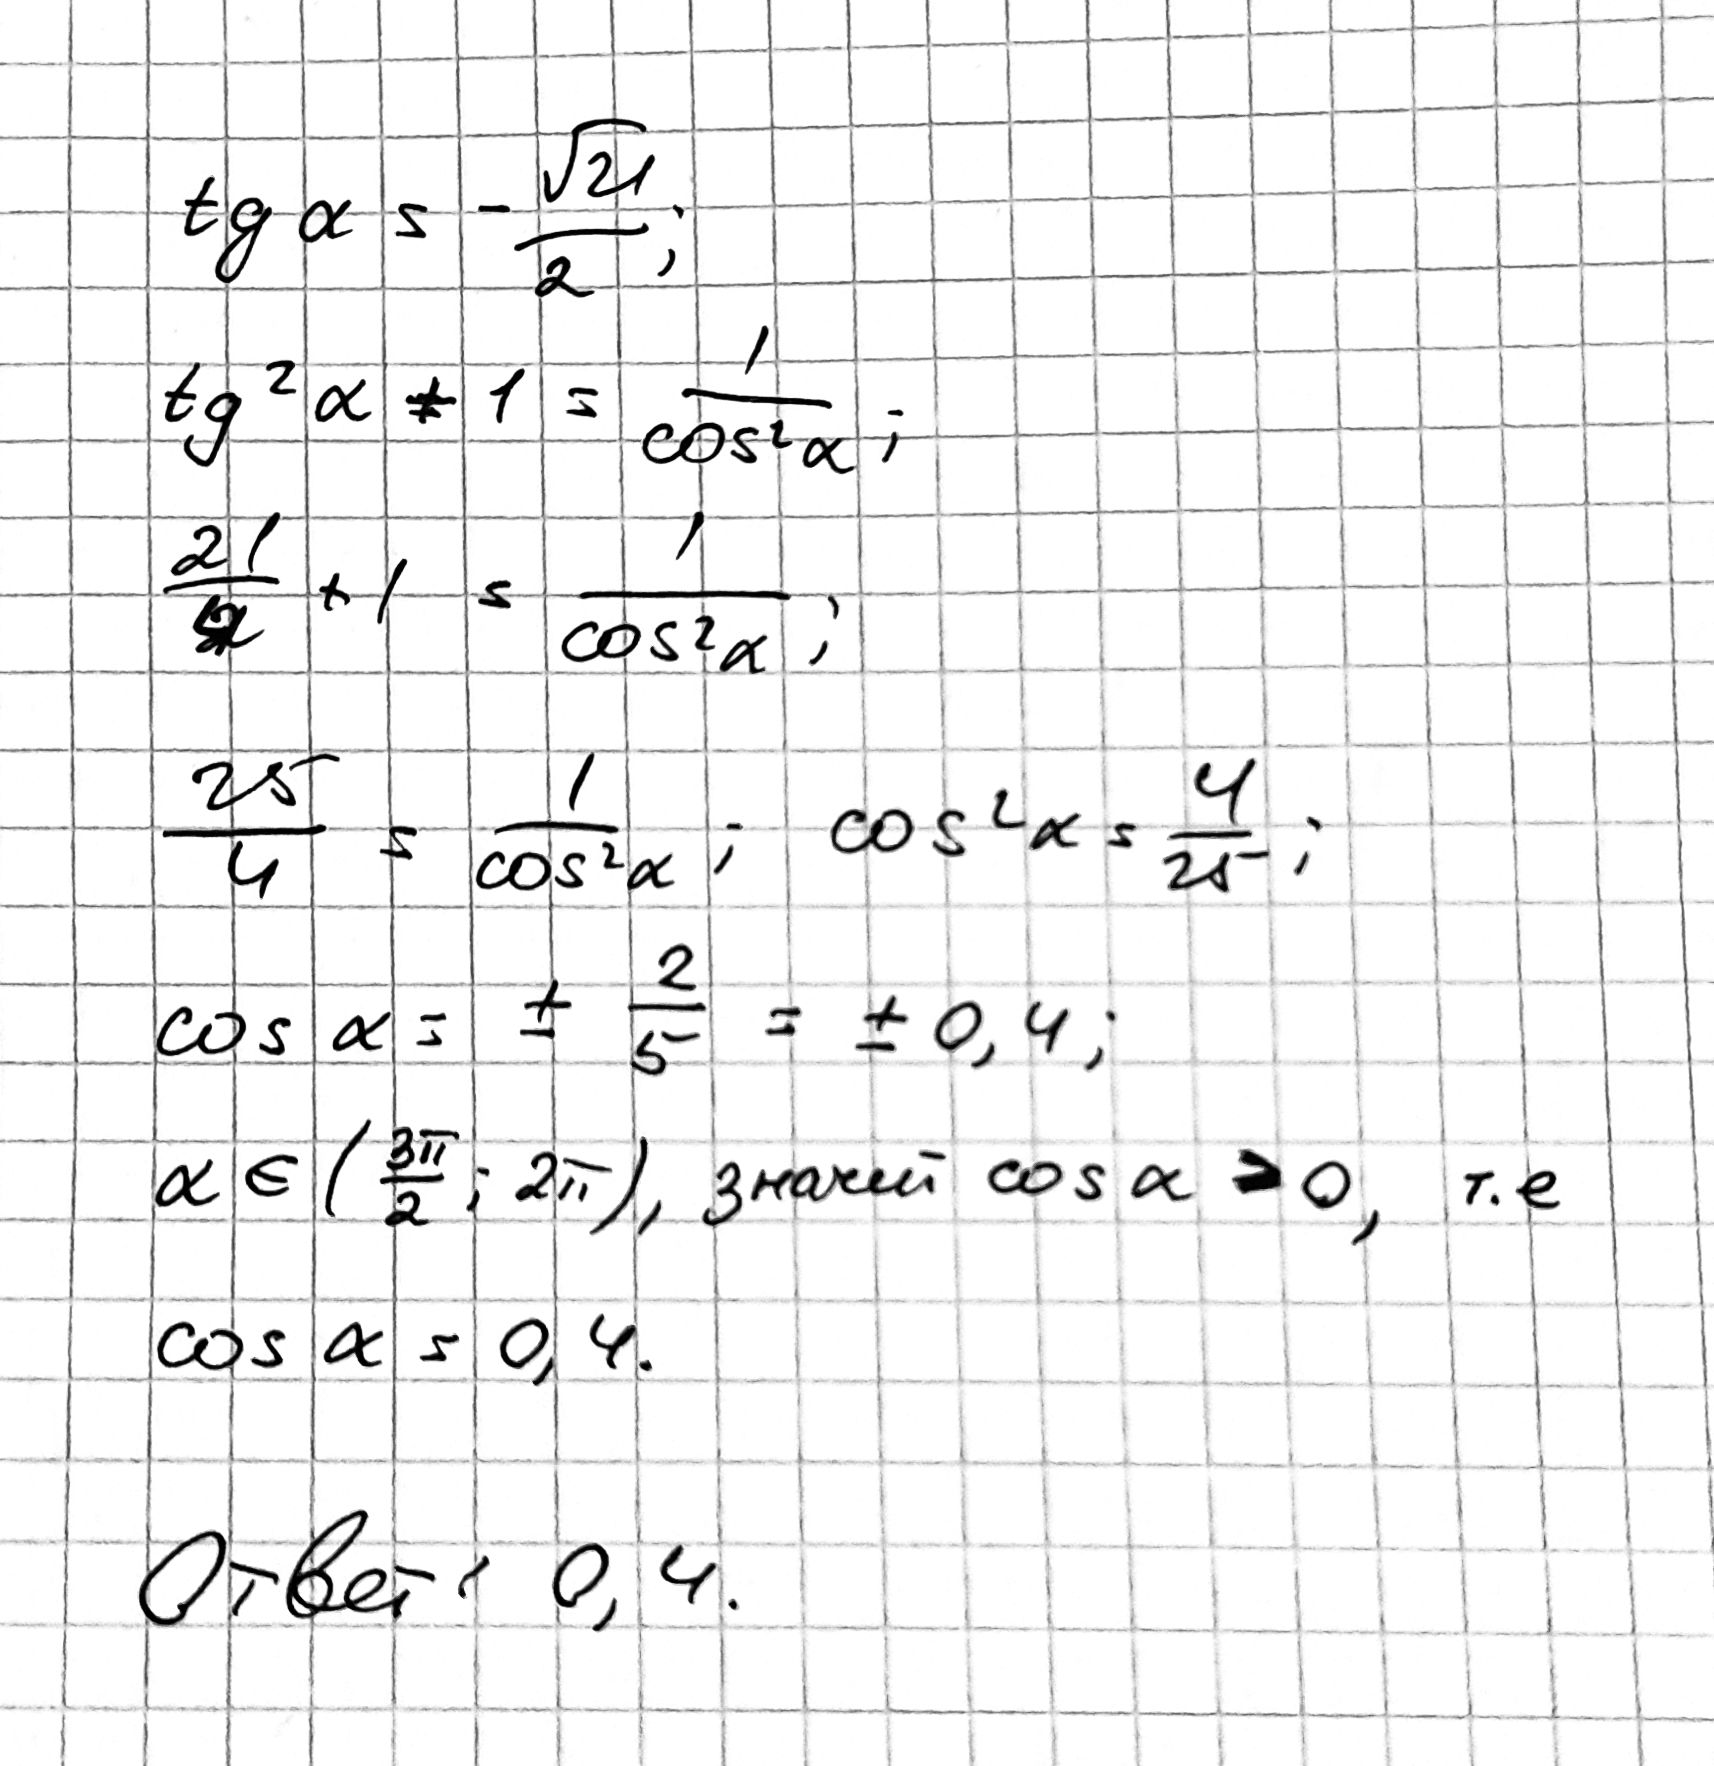 tg α = -√21/2;
tg² α + 1 = 1/cos² α;
21/4 + 1 = 1/cos² α;
25/4 = 1/cos² α; cos² α = 4/25;
cos α = ± 2/5 = ± 0,4;
α ∈ (3π/2; 2π), значит cos α > 0, т.е
cos α = 0,4.
Ответ: 0,4.